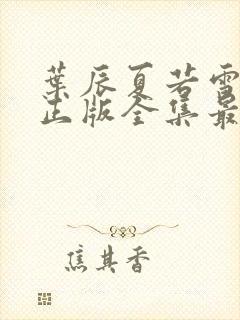 葉辰夏若雪
正版全集最
焦其香